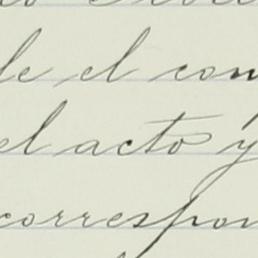 le el con
el acto y
correspon